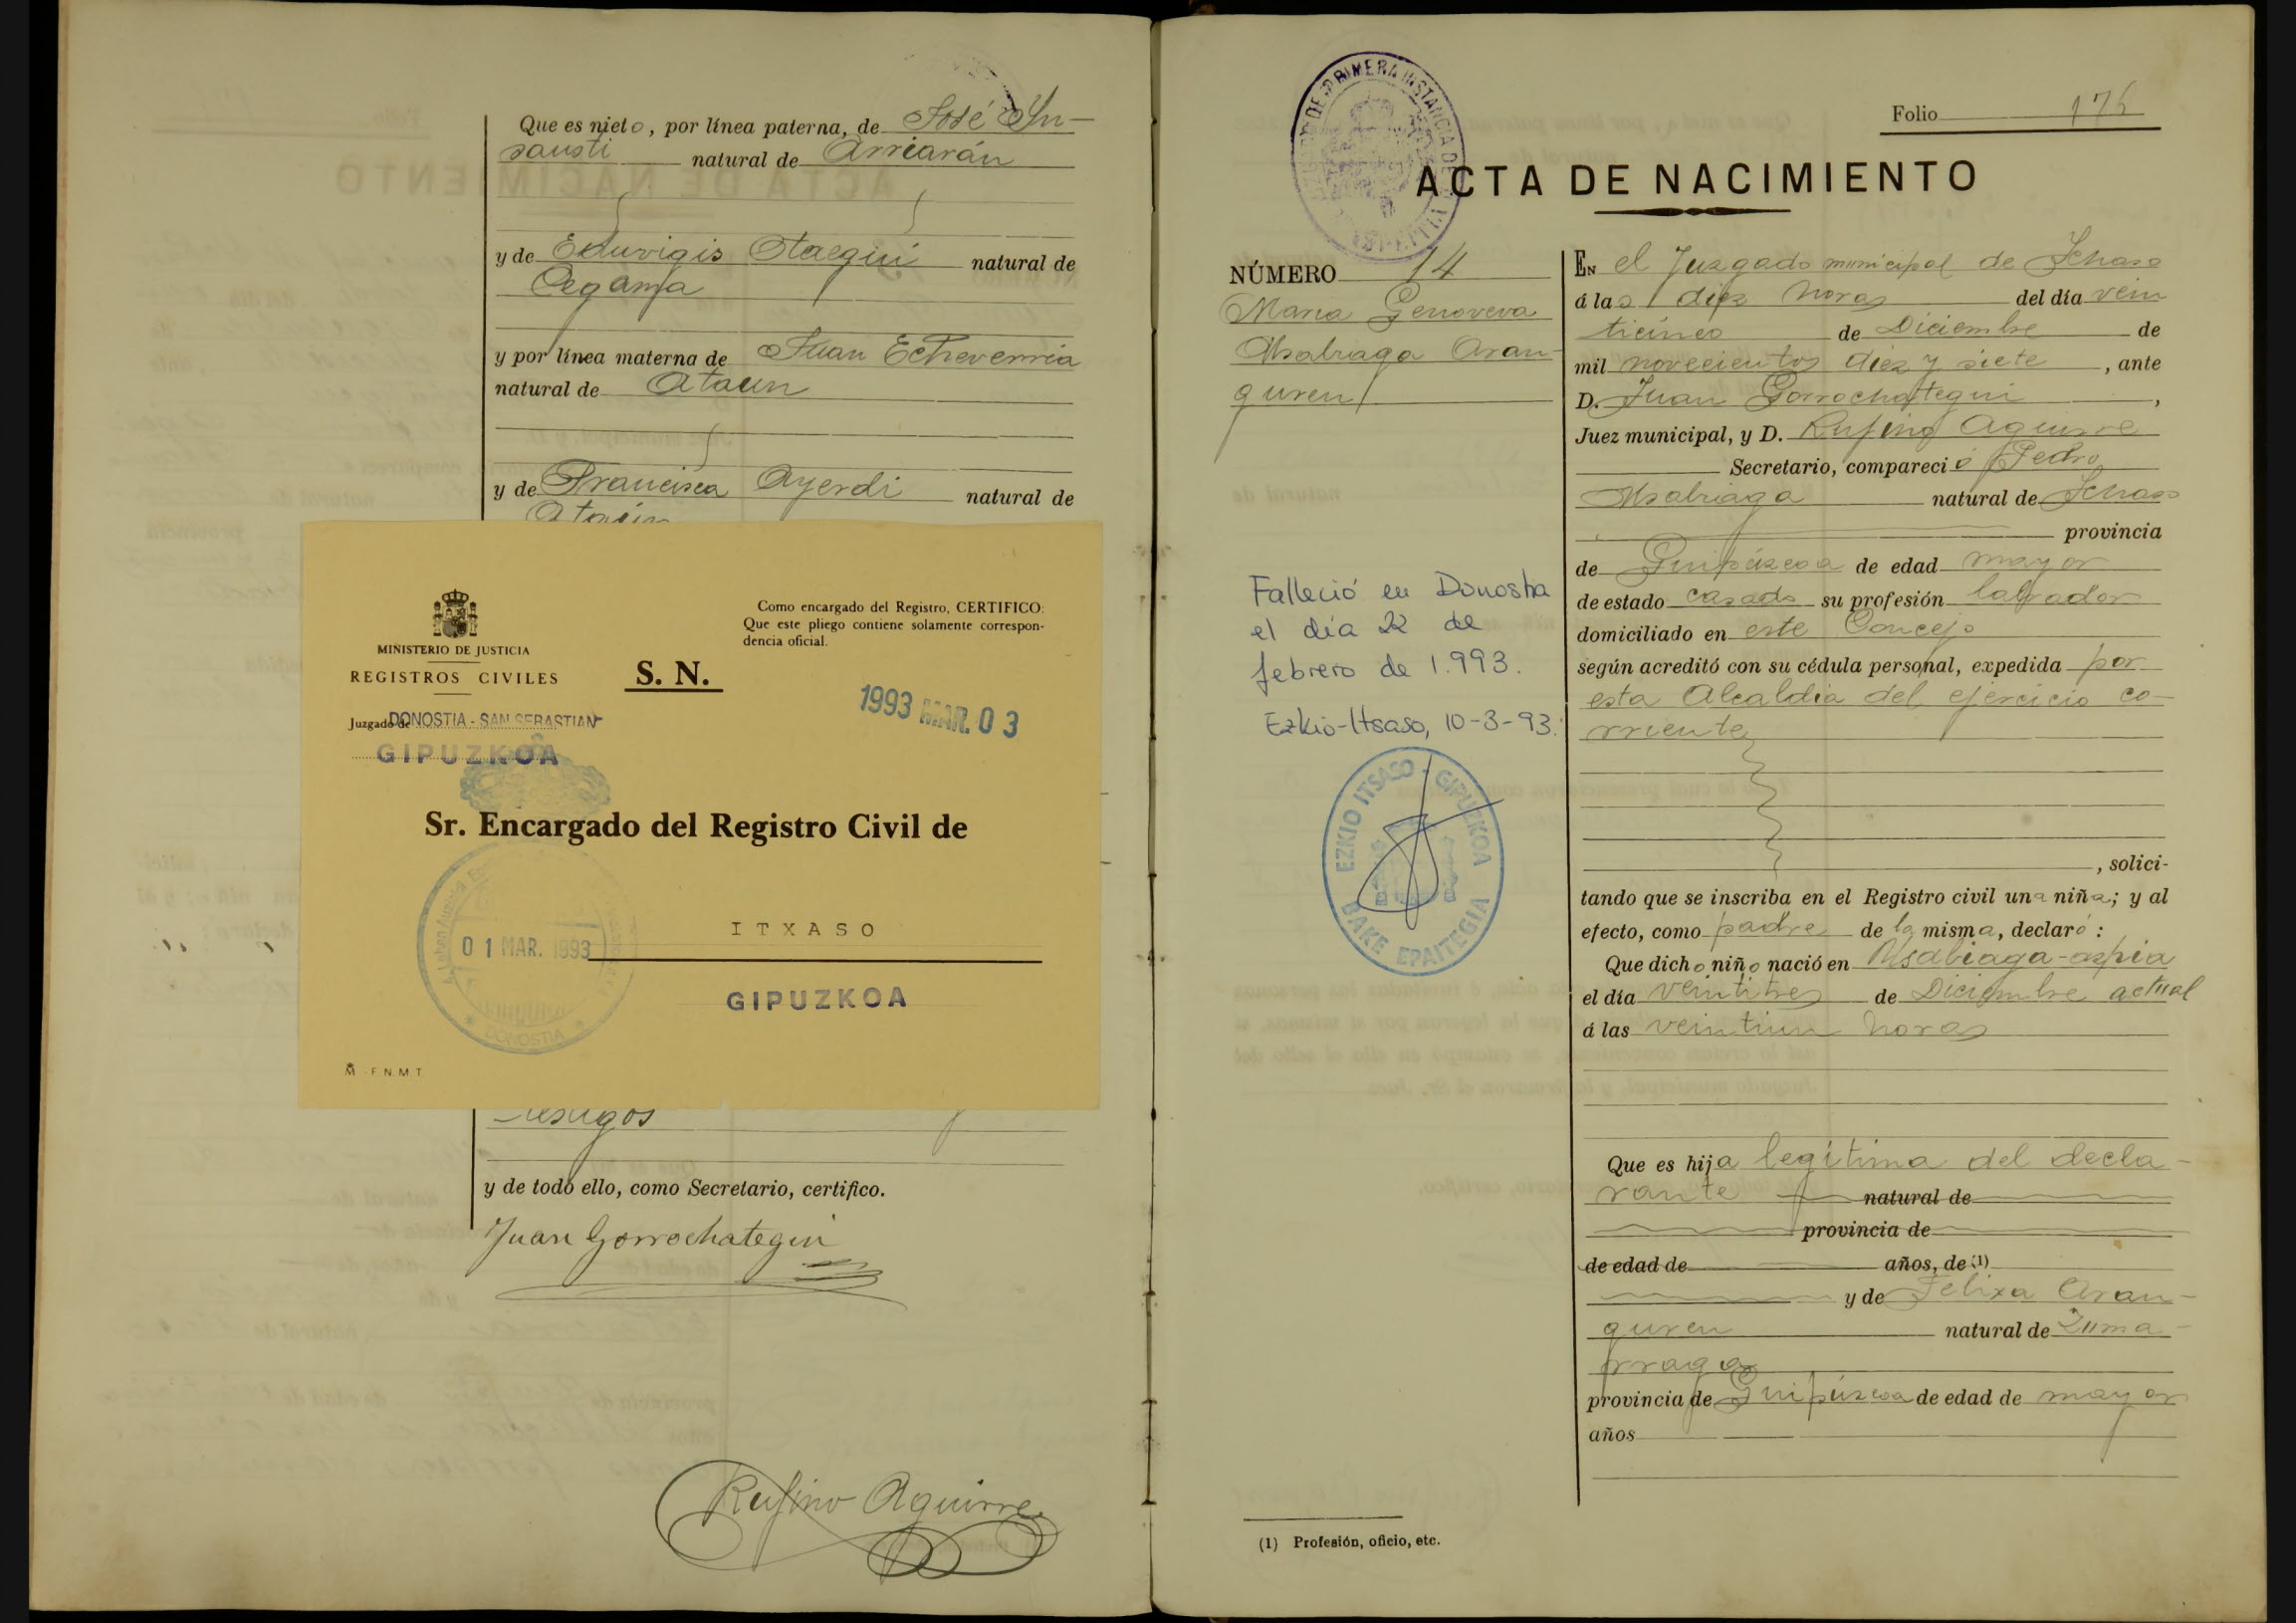 Que es nieto, por línea paterna, de José Yn-
sausti natural de Arriarán
y de Eduvigis Otaegui natural de
Cegama
y por línea materna de Juan Echeverria
natural de Ataun
y de Francisca Ayerdi natural de
Ataun
MINISTERIO DE JUSTICIA
REGISTROS CIVILES
Juzgado de DONOSTIA - SAN SEBASTIAN
GIPUZKOA
S. N.
Como encargado del Registro, CERTIFICO:
Que este pliego contiene solamente correspon-
dencia oficial.
1993 MAR. 03
Sr. Encargado del Registro Civil de
ITXASO
01 MAR. 1993
DONOSTIA
GIPUZKOA
F.N.M.T
testigos
y de todo ello, como Secretario, certifico.
Juan Gorrochategui
Rufino Aguirre
Folio 175
DE PRIMERA INSTANCIA DE
ACTA DE NACIMIENTO
NÚMERO 14
Maria Genoveva
Usabiaga Aran-
guren
Falleció en Donostia
el día 22 de
febrero de 1.993.
Ezkio-Itsaso, 10-3-93.
EZKIO ITSASO - GIPUZKOA
BAKE EPAITEGIA
EN el Juzgado municipal de Ichaso
á las diez horas del día vein
ticinco de Diciembre de
mil novecientos diez y siete, ante
D. Juan Gorrochategui,
Juez municipal, y D. Rufino Aguirre
Secretario, compareció Pedro
Usabiaga natural de Ichaso
provincia
de Guipúzcoa de edad mayor
de estado casado su profesión labrador
domiciliado en este Concejo
según acreditó con su cédula personal, expedida por
esta Alcaldia del ejercicio co-
rriente
, solici-
tando que se inscriba en el Registro civil una niña; y al
efecto, como padre de la misma, declaró:
Que dicho niño nació en Usabiaga-aspia
el día veintitres de Diciembre actual
á las veintiun horas
Que es hija legítima del decla-
rante natural de
provincia de
de edad de años, de (1)
y de Felixa Aran-
guren natural de Zuma-
rraga
provincia de Guipúzcoa de edad de mayor
años
(1) Profesión, oficio, etc.